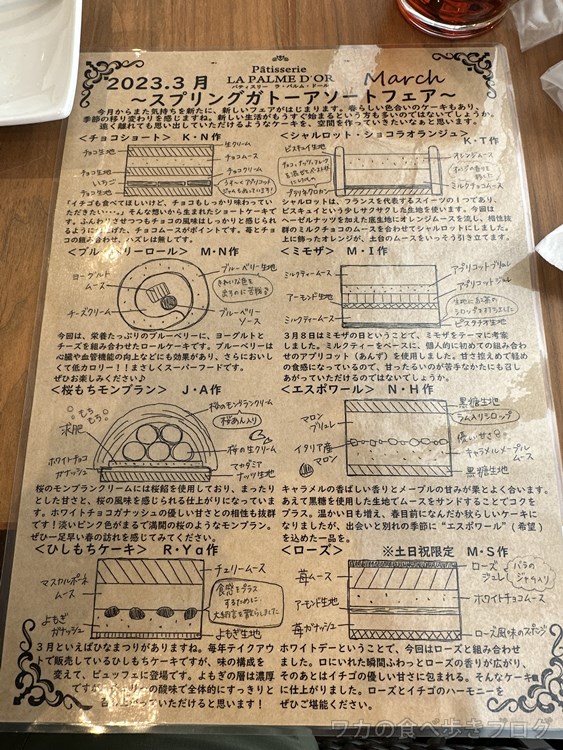 Pâtisserie
LA PALME D'OR
パティスリー ラ・パルム・ドール
2023.3月 March
~スプリングガトーアソートフェア~
今月からまた気持ちを新たに、新しいフェアがはじまります。春らしい色合いのケーキもあり、
季節の移り変わりを感じますね。新しい生活がもうすぐ始まるという方も多いのではないでしょうか。
遠く離れても思い出していただけるようなケーキを、空間を作っていきたいなぁと思います。
<チョコショート> K・N作
チョコ生地
チョコ生地
いちご
チョコ生地
生クリーム
チョコムース
チョコクリーム
「イチゴも食べてほしいけど、チョコもしっかり味わってい
ただきたい…。」そんな想いから生まれたショートケーキで
す。ふんわりさせつつもチョコの風味はしっかりと感じられ
るように仕上げた、チョコムースがポイントです。苺とチョ
コの組み合わせ、ハズレは無しです。
<シャルロット・ショコラオランジュ>
K・T作
ビスキュイ生地
プラリネクロカン
オレンジムース
ミルクチョコムース
シャルロットは、フランスを代表するスイーツの1つであり、
ビスキュイという少しサクサクした生地を使います。今回は
ヘーゼルナッツを加えた底生地にオレンジムースを流し、相性抜
群のミルクチョコのムースを合わせてシャルロットにしました。
上に飾ったオレンジが、土台のムースをいっそう引き立てます。
<ブルーベリーロール> M・N作
ヨーグルトムース
チーズクリーム
ブルーベリー生地
きれいな色を出すのに苦労💦
ブルーベリーソース
今回は、栄養たっぷりのブルーベリーに、ヨーグルトと
チーズを組み合わせたロールケーキです。ブルーベリーは
心臓や血管機能の向上などにも効果があり、さらにおいし
くて低カロリー!!まさしくスーパーフードです。
ぜひお楽しみください♪
<ミモザ> M・I作
ミルクティームース
アーモンド生地
ミルクティームース
アプリコットブリュレ
アプリコットジュレ
生地にお茶のシロップを打ちました
ピスタチオ生地
3月8日はミモザの日ということで、ミモザをテーマに考案
しました。ミルクティーをベースに、個人的に初めての組み合わ
せのアプリコット(あんず)を使用しました。甘さ控えめで軽め
の食感になっているので、甘ったるいのが苦手なかたにも召し
あがっていただけるのではないでしょうか。
<桜もちモンブラン> J・A作
もちもち
求肥
ホワイトチョコガナッシュ
桜のモンブランクリーム
桜あん入り
桜の生クリーム
マカダミアナッツ生地
桜のモンブランクリームには桜餡を使用しており、まったり
とした甘さと、桜の風味を感じられる仕上がりになっていま
す。ホワイトチョコガナッシュの優しい甘さとの相性も抜群
です!淡いピンク色がまるで満開の桜のようなモンブラン。
ぜひ一足早い春の訪れを感じてみてください。
<エスポワール> N・H作
マロンブリュレ
イタリア産マロン
黒糖生地
ラム入りシロップ
優しい甘さ
キャラメルメープルムース
黒糖生地
キャラメルの香ばしい香りとメープルの甘みが栗とよく合います。
あえて黒糖を使用した生地でムースをサンドすることでコクを
プラス。温かい日も増え、春目前になんだか秋らしいケーキに
なりましたが、出会いと別れの季節に"エスポワール"(希望)
を込めた一品を。
<ひしもちケーキ> R・Ya作
マスカルポーネムース
よもぎガナッシュ
チェリームース
食感をプラスするために、大納言を散らしました
よもぎ生地
3月といえばひなまつりがありますね。毎年テイクアウ
トで販売しているひしもちケーキですが、味の構成を
変えて、ビュッフェに登場です。よもぎの層は濃厚
ーの酸味で全体的にすっきりと
がっていただけると思います!
<ローズ> ※土日祝限定 M・S作
苺ムース
アーモンド生地
苺ガナッシュ
ローズジュレ
バラのジャム入り
ホワイトチョコムース
ローズ風味のスポンジ
ホワイトデーということで、今回はローズと組み合わせ
ました。口にいれた瞬間ふわっとローズの香りが広がり、
そのあとはイチゴの優しい甘さに包まれる。そんなケーキ
に仕上がりました。ローズとイチゴのハーモニーを
ぜひご堪能ください。
ワカの食べ歩きブログ